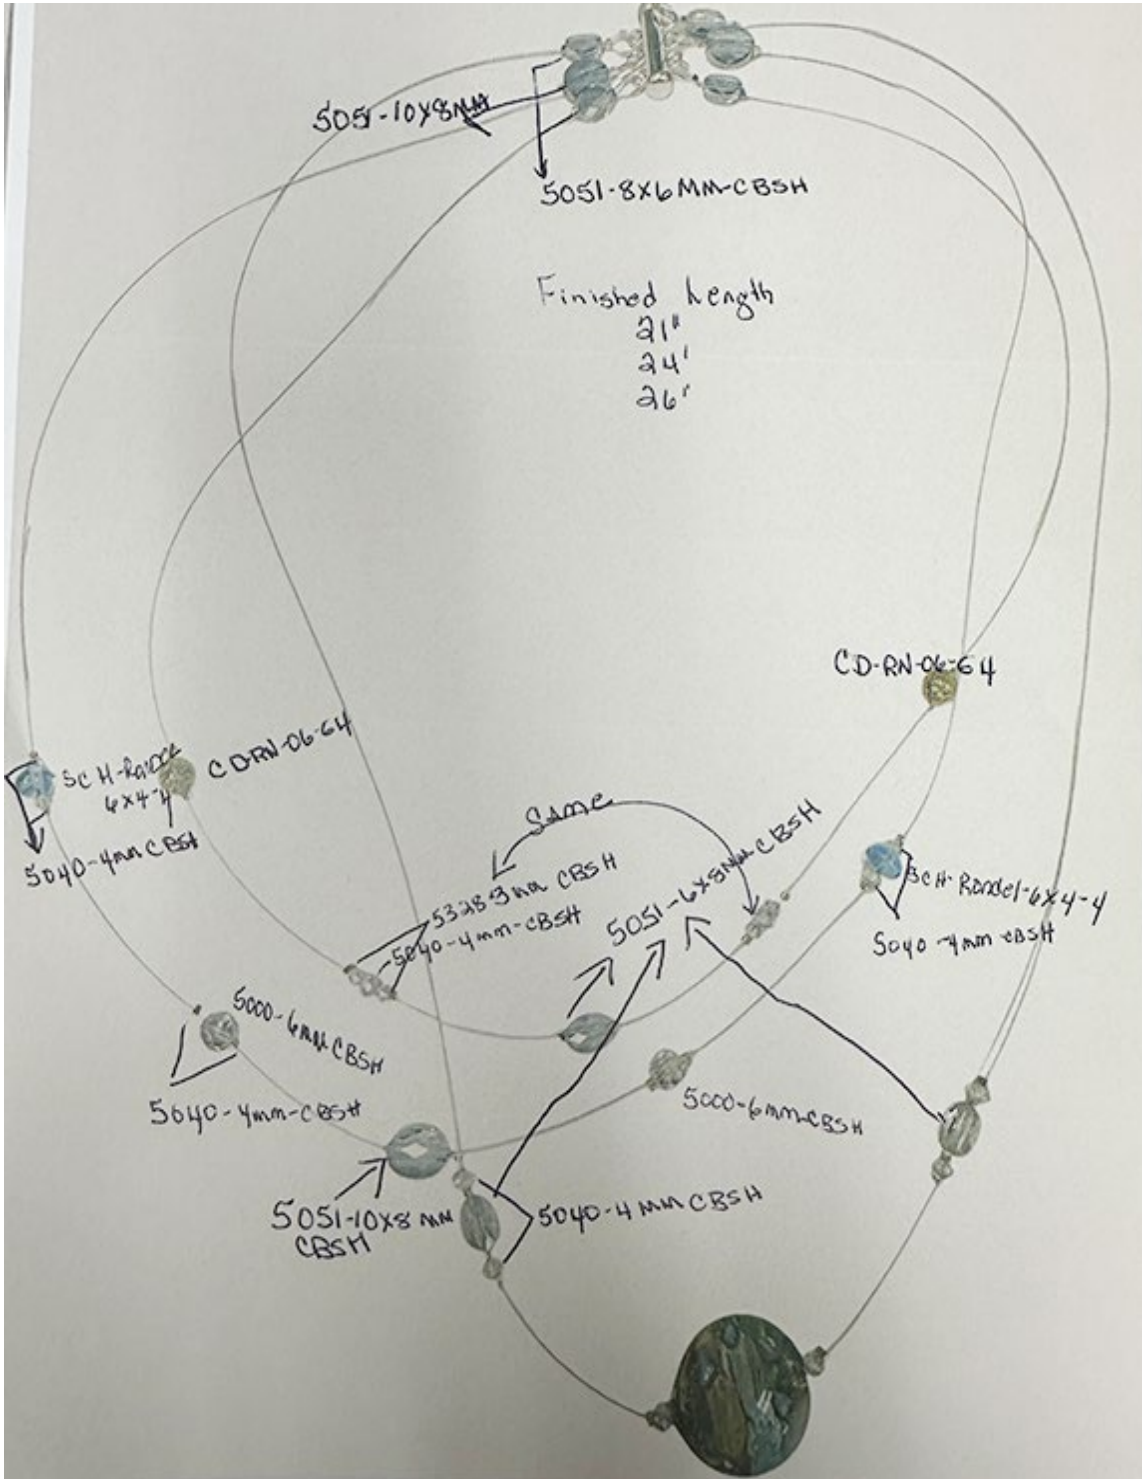 5051-10X8MM
5051-8X6MM-CBSH
Finished Length
21"
24'
26'
CD-RN-06-64
CD-RN-06-64
SCH-Rondel
6x4-4
5040-4mm CBSH
Same
5328-3mm CBSH
5040-4mm-CBSH
5051-6x8MM CBSH
SCH-Rondel-6x4-4
5040-4mm-CBSH
5000-6mm CBSH
5040-4mm-CBSH
5000-6mm-CBSH
5051-10x8 MM
CBSH
5040-4 MM CBSH